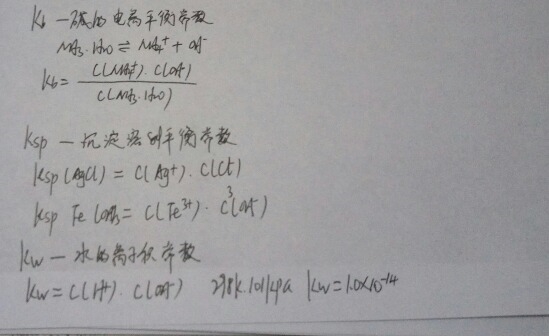 Kb —碱的电离平衡常数
NH₃·H₂O ⇌ NH₄⁺ + OH⁻
Kb = C(NH₄⁺)·C(OH⁻) / C(NH₃·H₂O)
Ksp — 沉淀溶剂平衡常数
Ksp(AgCl) = C(Ag⁺)·C(Cl⁻)
Ksp Fe(OH)₃ = C(Fe³⁺)·C³(OH⁻)
Kw — 水的离子积常数
Kw = C(H⁺)·C(OH⁻) 298K.101kpa Kw=1.0×10⁻¹⁴